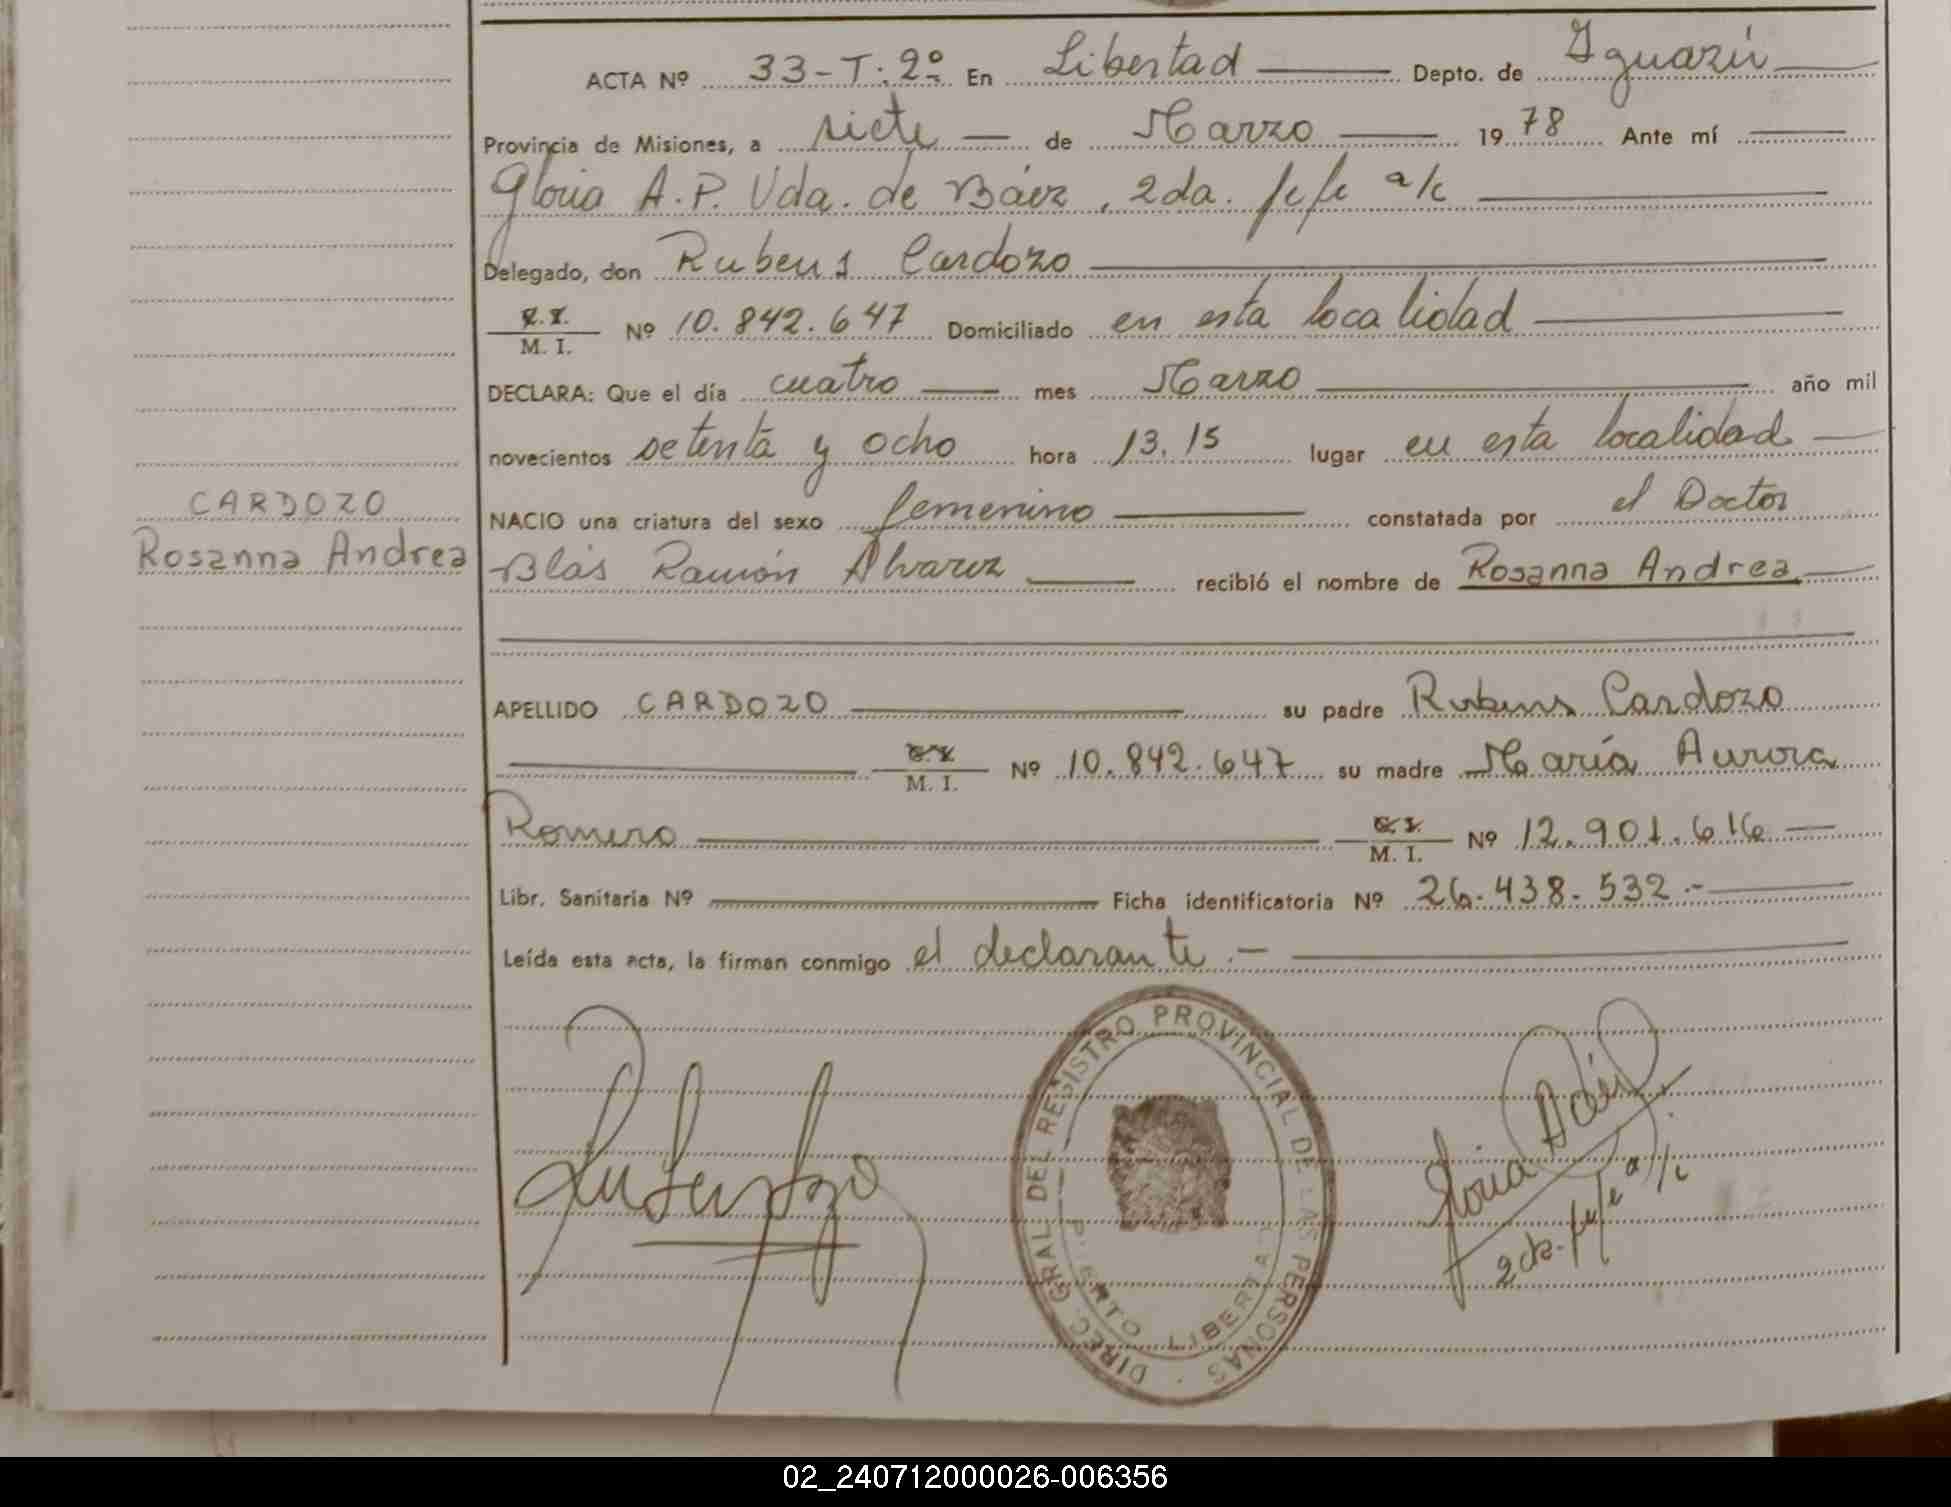 ACTA Nº 33-T:2º En Libertad Depto. de Iguazú
Provincia de Misiones, a siete de Marzo 1978 Ante mí
Gloria A.P. Vda. de Báez, 2da. jefe a/c
Delegado, don Rubens Cardozo
C.I.
M. I. Nº 10.842.647 Domiciliado en esta localidad
DECLARA: Que el día cuatro mes Marzo año mil
novecientos setenta y ocho hora 13.15 lugar en esta localidad
CARDOZO
Rosanna Andrea
NACIO una criatura del sexo femenino constatada por el Doctor
Blás Ramón Alvarez recibió el nombre de Rosanna Andrea
APELLIDO CARDOZO su padre Rubens Cardozo
C.I.
M. I. Nº 10.842.647 su madre María Aurora
Romero C.I.
M. I. Nº 12.901.616
Libr. Sanitaria Nº Ficha identificatoria Nº 26.438.532.-
Leída esta acta, la firman conmigo el declarante.-
DIREC. GRAL DEL REGISTRO PROVINCIAL DE LAS PERSONAS
PUERTO LIBERTAD
Gloria Báez
2da. jefe a/c
02_240712000026-006356